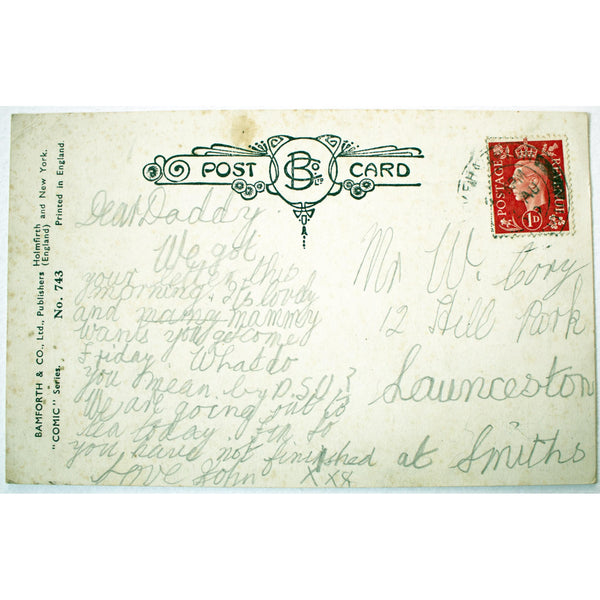 BAMFORTH & CO., Ltd., Publishers Holmfirth and New York.
(England)
"COMIC" Series. No. 743 Printed in England.
POST CARD
B Co Ltd
POSTAGE REVENUE
1D
Dear Daddy
We got
your letter this
morning. Its lovely
and mammy
wants you to come
Friday What do
you mean by D.S.O?
We are going out to
tea today. Im so
you have not finished at Smiths
Love John xxx
Mr W. Cory
12 Hill Park
Launceston